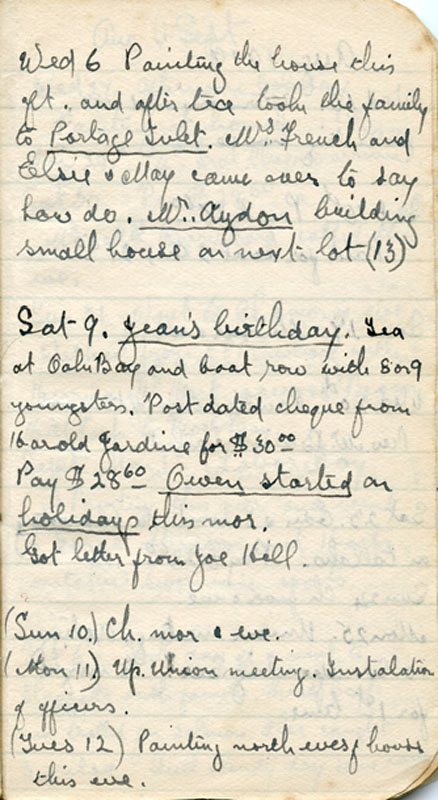 Wed 6 Painting the house this
aft. and after tea took the family
to Portage Inlet. Mrs. French and
Elsie & May came over to say
how do. Mr. Aydon building
small house on next lot (13)
Sat 9. Jean's birthday. Tea
at Oak Bay and boat row with 8 or 9
youngsters. Post dated cheque from
Harold Jardine for $30.00
Pay $28.60 Owen started on
holidays this mor.
Got letter from Joe Hall.
(Sun 10.) Ch. mor & eve.
(Mon 11) Up. Union meeting. Instalation
of officers.
(Tues 12) Painting north eves of house
this eve.